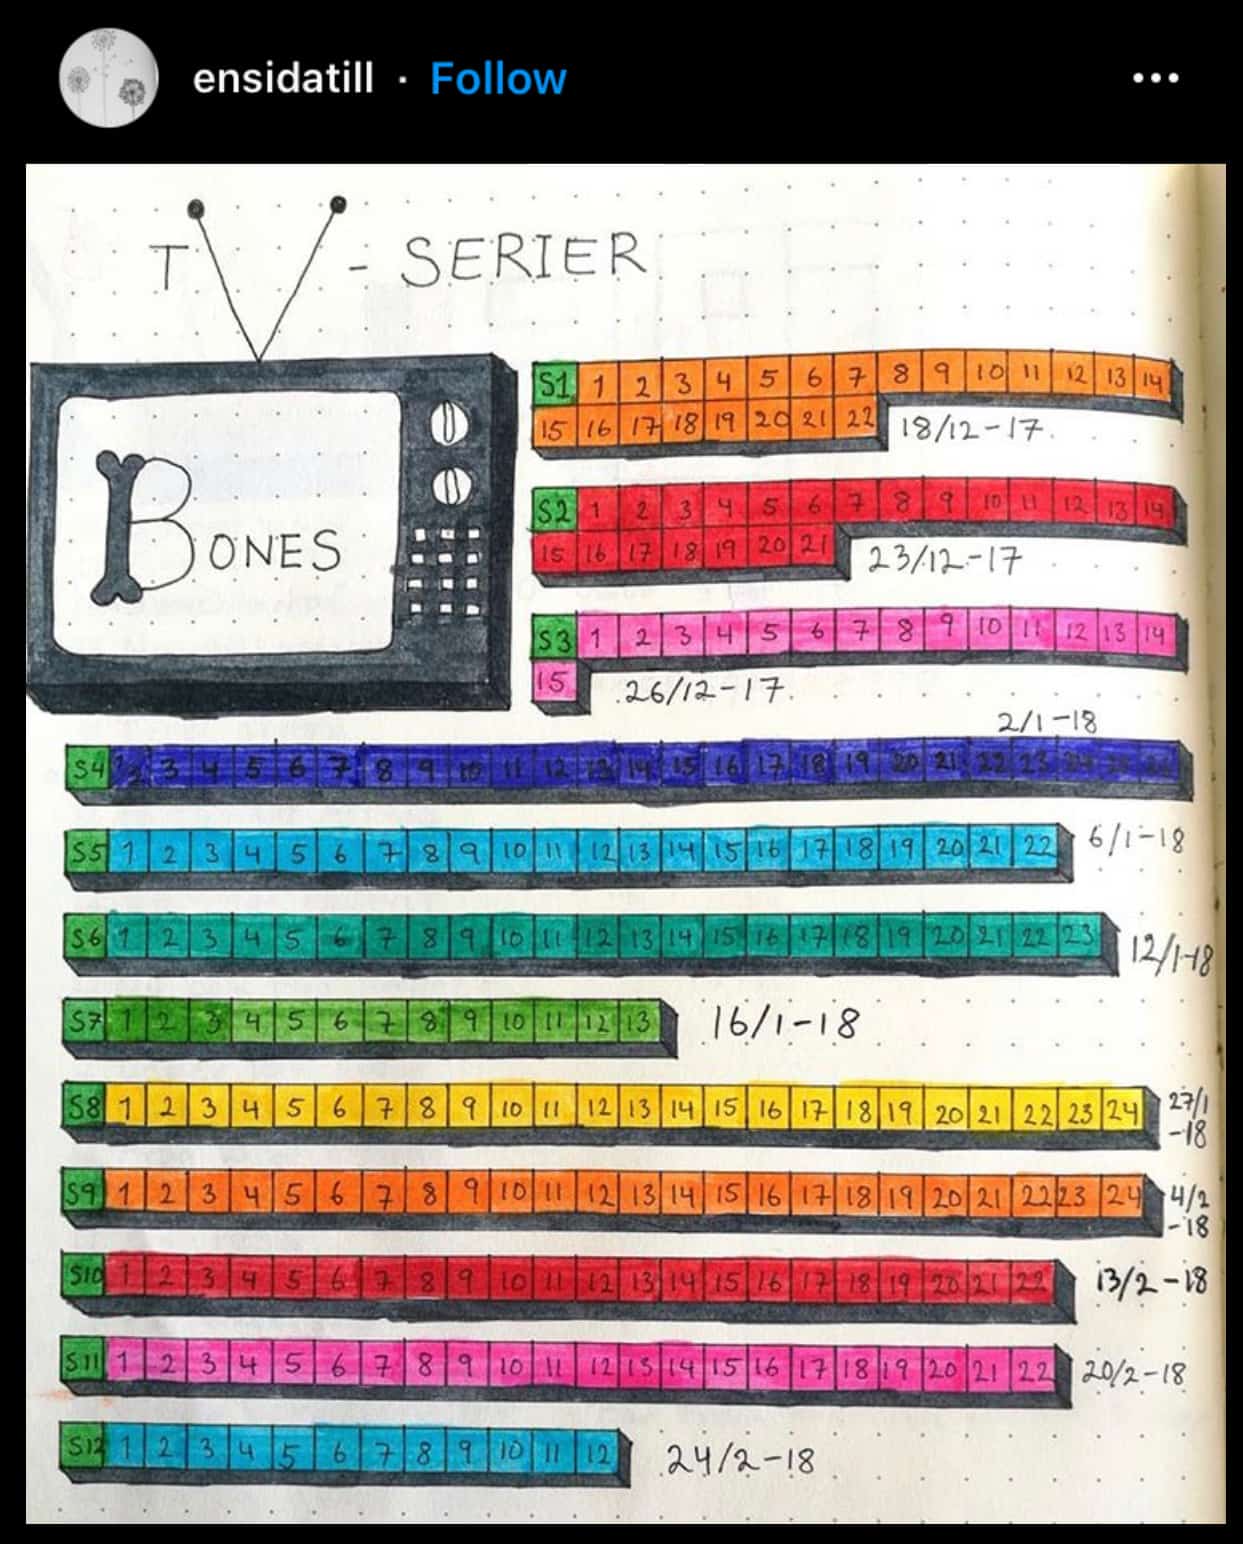 ensidatill · Follow
TV - SERIER
BONES
S1 1 2 3 4 5 6 7 8 9 10 11 12 13 14
15 16 17 18 19 20 21 22 18/12-17.
S2 1 2 3 4 5 6 7 8 9 10 11 12 13 14
15 16 17 18 19 20 21 23/12-17
S3 1 2 3 4 5 6 7 8 9 10 11 12 13 14
15 26/12-17.
2/1-18
S4 1 2 3 4 5 6 7 8 9 10 11 12 13 14 15 16 17 18 19 20 21 22 23 24 25 26
S5 1 2 3 4 5 6 7 8 9 10 11 12 13 14 15 16 17 18 19 20 21 22 6/1-18
S6 1 2 3 4 5 6 7 8 9 10 11 12 13 14 15 16 17 18 19 20 21 22 23 12/1-18
S7 1 2 3 4 5 6 7 8 9 10 11 12 13 16/1-18
S8 1 2 3 4 5 6 7 8 9 10 11 12 13 14 15 16 17 18 19 20 21 22 23 24 27/1
-18
S9 1 2 3 4 5 6 7 8 9 10 11 12 13 14 15 16 17 18 19 20 21 22 23 24 4/2
-18
S10 1 2 3 4 5 6 7 8 9 10 11 12 13 14 15 16 17 18 19 20 21 22 13/2-18
S11 1 2 3 4 5 6 7 8 9 10 11 12 13 14 15 16 17 18 19 20 21 22 20/2-18
S12 1 2 3 4 5 6 7 8 9 10 11 12 24/2-18